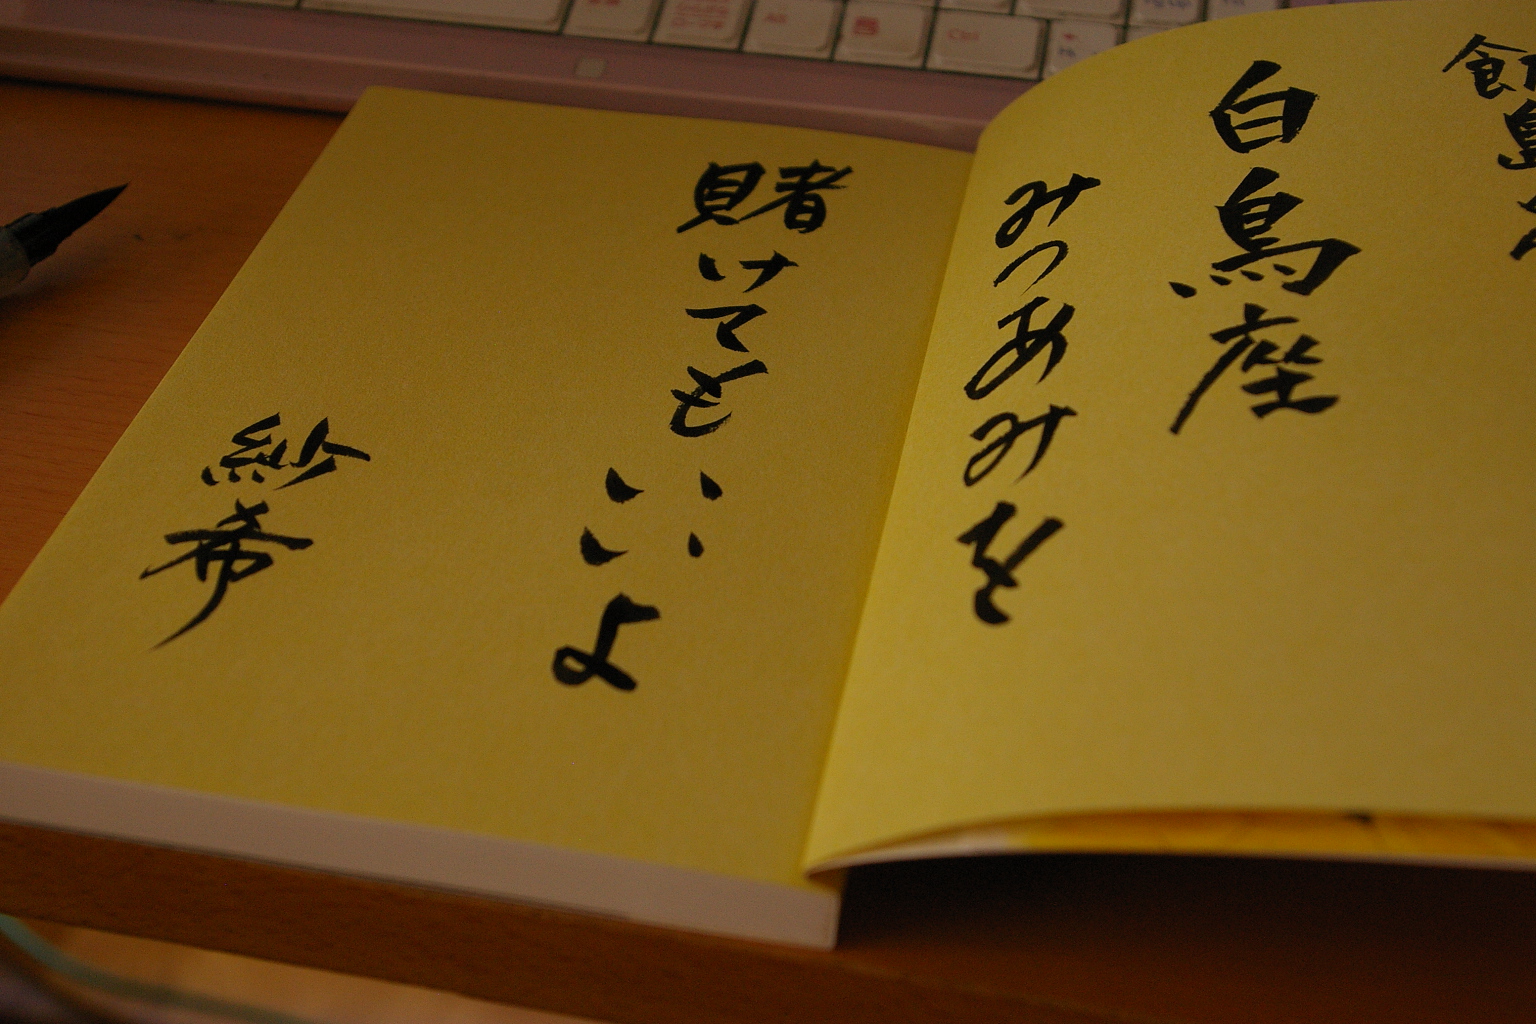 白鳥座
みつあみを
賭けてもいいよ
紗希
Ctrl
Alt